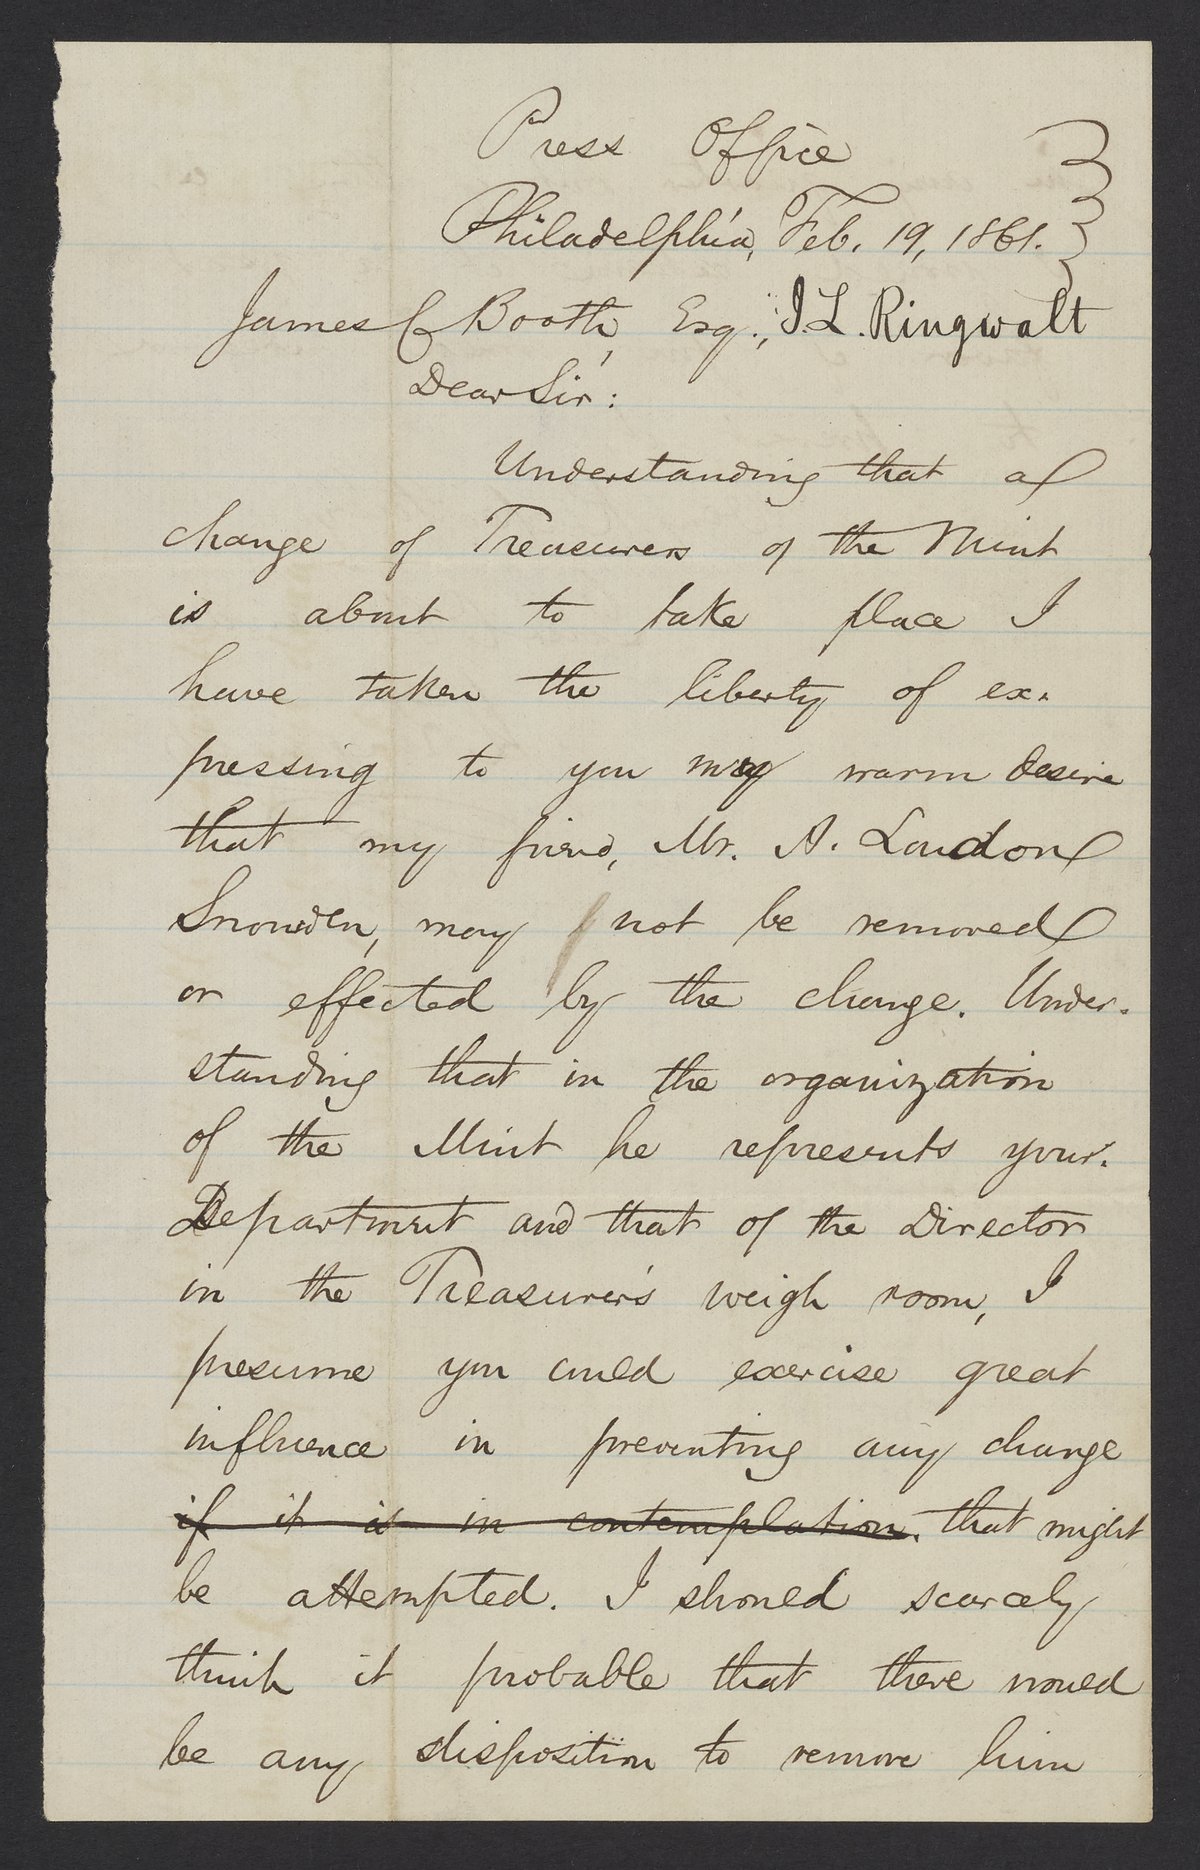 Press Office
Philadelphia, Feb. 19, 1861.
James C Booth, Esq., J. L. Ringwalt
Dear Sir:
Understanding that a
change of Treasurers of the Mint
is about to take place I
have taken the liberty of ex-
pressing to you my warm desire
that my friend, Mr. A. Loudon
Snowden, may not be removed
or effected by the change. Under-
standing that in the organization
of the Mint he represents your
Department and that of the Director
in the Treasurer's weigh room, I
presume you could exercise great
influence in preventing any change
if it is in contemplation. that might
be attempted. I should scarcely
think it probable that there would
be any disposition to remove him